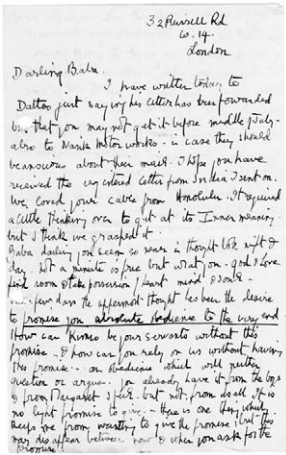 32 Russell Rd
W. 14.
London
Darling Baba.
I have written today to
Dalton just saying his letter has been forwarded
but that you may not get it before middle of July -
also to Nanka Motor works - in case they should
be anxious about their mail. I hope you have
received the registered letter from India I sent on.
We loved your cable from Honolulu. It required
a little thinking over to get at its Inner meaning
but I think we grasped it.
Baba darling you seem so near in thought both night &
day. Not a minute is free but what you - God & Love
find room & take possession of heart mind & soul -
few days the uppermost thought has been the desire
to promise you absolute obedience to the very end
How can Kimco be your servants without this
promise - & how can you rely on us without having
this promise - an obedience which will neither
question or argue. You already have it from the boys
& from Margaret I feel. but not from us all. It is
no light promise to give - there is one thing which
keeps me from wanting to give the promise & that this
may disappear between now & when you ask for the
promise